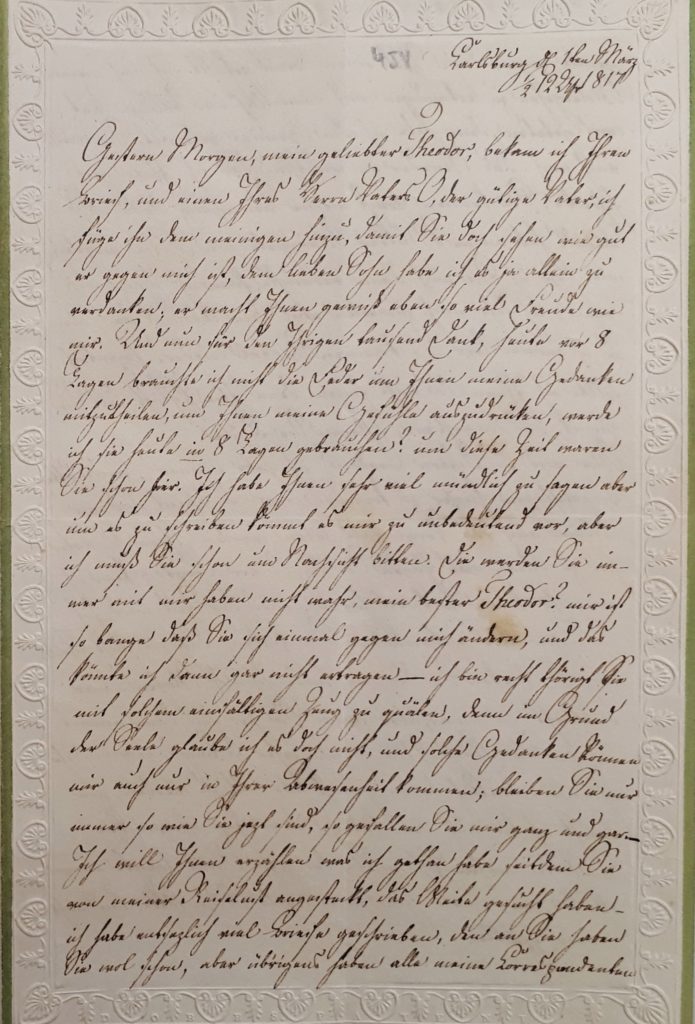 454
Carlsburg d. 1ten März
1/2 12 Uhr 1817
Gestern Morgen, mein geliebter Theodor, bekam ich Ihren
Brief, und einen Ihres Herrn Vaters O, der gütige Vater, ich
füge ihn dem meinigen hinzu, damit Sie doch sehen wie gut
er gegen mich ist, dem lieben Sohn habe ich es ja allein zu
verdanken; er macht Ihnen gewiß eben so viel Freude wie
mir. Und nun für den Ihrigen tausend Dank, heute vor 8
Tagen brauchte ich nicht die Feder um Ihnen meine Gedanken
mitzutheilen, um Ihnen meine Gefühle auszudrücken, werde
ich sie heute in 8 Tagen gebrauchen? um diese Zeit waren
Sie schon hier. Ich habe Ihnen sehr viel mündlich zu sagen aber
um es zu schreiben kömmt es mir zu unbedeutend vor, aber
ich muß Sie schon um Nachsicht bitten. Die werden Sie im-
mer mit mir haben nicht wahr, mein bester Theodor? mir ist
so bange daß Sie sich einmal gegen mich ändern, und das
könnte ich dann gar nicht ertragen — ich bin recht thörigt Sie
mit solchem einfältigen Zeug zu quälen, denn im Grund
der Seele glaube ich es doch nicht, und solche Gedanken können
mir auch nur in Ihrer Abwesenheit kommen; bleiben Sie nur
immer so wie Sie jezt sind, so gefallen Sie mir ganz und gar. —
Ich will Ihnen erzählen was ich gethan habe seitdem Sie
von meiner Reiselust angesteckt, das Weite gesucht haben –
ich habe entsezlich viel Briefe geschrieben, den an Sie haben
Sie wol schon, aber übrigens haben alle meine Correspondenten